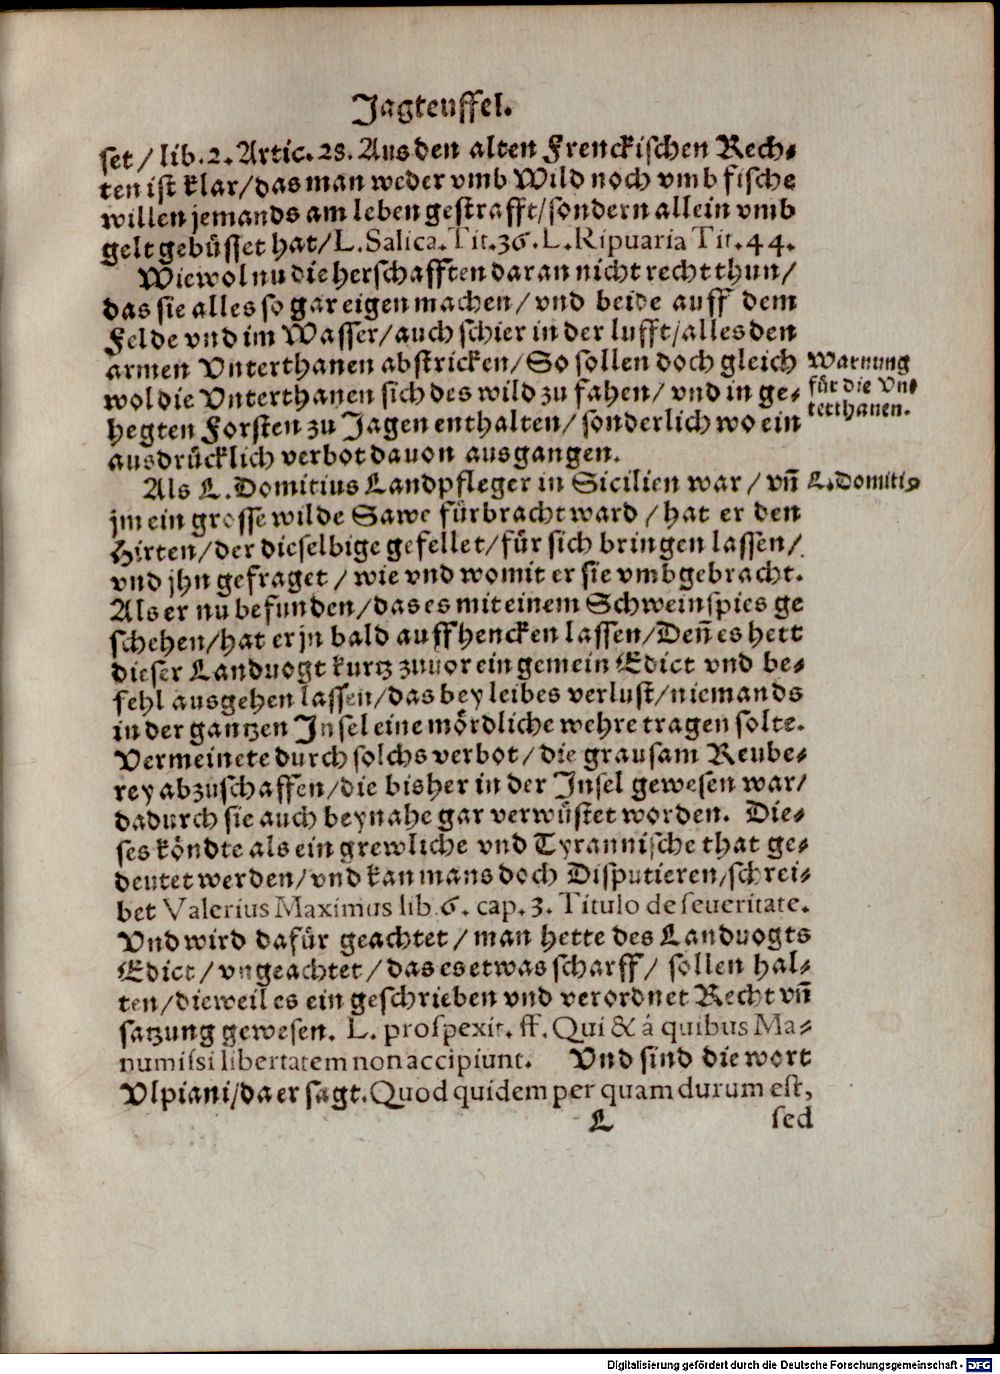 Jagteuffel.
set / lib. 2. Artic. 28. Aus den alten Frenckischen Rech-
ten ist klar / das man weder vmb Wild noch vmb fische
willen jemands am leben gestrafft / sondern allein vmb
gelt gebüsset hat / L. Salica. Tit. 36. L. Ripuaria Tit. 44.
Wiewol nu die herschafften daran nicht recht thun /
das sie alles so gar eigen machen / vnd beide auff dem
Felde vnd im Wasser / auch schier in der lufft / alles den
armen Vnterthanen abstricken / So sollen doch gleich
wol die Vnterthanen sich des wild zu fahen / vnd in ge-
hegten Forsten zu Jagen enthalten / sonderlich wo ein
ausdrücklich verbot dauon ausgangen.
Warnung
für die Vn-
terthanen.
Als L. Domitius Landpfleger in Sicilien war / vñ
L. Domitiꝰ
jm ein grosse wilde Sawe fürbracht ward / hat er den
Hirten / der dieselbige gefellet / für sich bringen lassen /
vnd jhn gefraget / wie vnd womit er sie vmbgebracht.
Als er nu befunden / das es mit einem Schweinspies ge
schehen / hat er jn bald auffhencken lassen / Deñ es hett
dieser Landuogt kurtz zuuor ein gemein Edict vnd be-
fehl ausgehen lassen / das bey leibes verlust / niemands
in der gantzen Insel eine mördliche wehre tragen solte.
Vermeinete durch solchs verbot / die grausam Reube-
rey abzuschaffen / die bisher in der Insel gewesen war /
dadurch sie auch beynahe gar verwüstet worden. Die-
ses köndte als ein grewliche vnd Tyrannische that ge-
deutet werden / vnd kan mans doch Disputieren / schrei-
bet Valerius Maximus lib. 6. cap. 3. Titulo de seueritate.
Vnd wird dafür geachtet / man hette des Landuogts
Edict / vngeachtet / das es etwas scharff / sollen hal-
ten / dieweil es ein geschrieben vnd verordnet Recht vñ
satzung gewesen. L. prospexit. ff. Qui & á quibus Ma-
numissi libertatem non accipiunt. Vnd sind die wort
Vlpiani / da er sagt. Quod quidem per quam durum est,
L sed
Digitalisierung gefördert durch die Deutsche Forschungsgemeinschaft - DFG